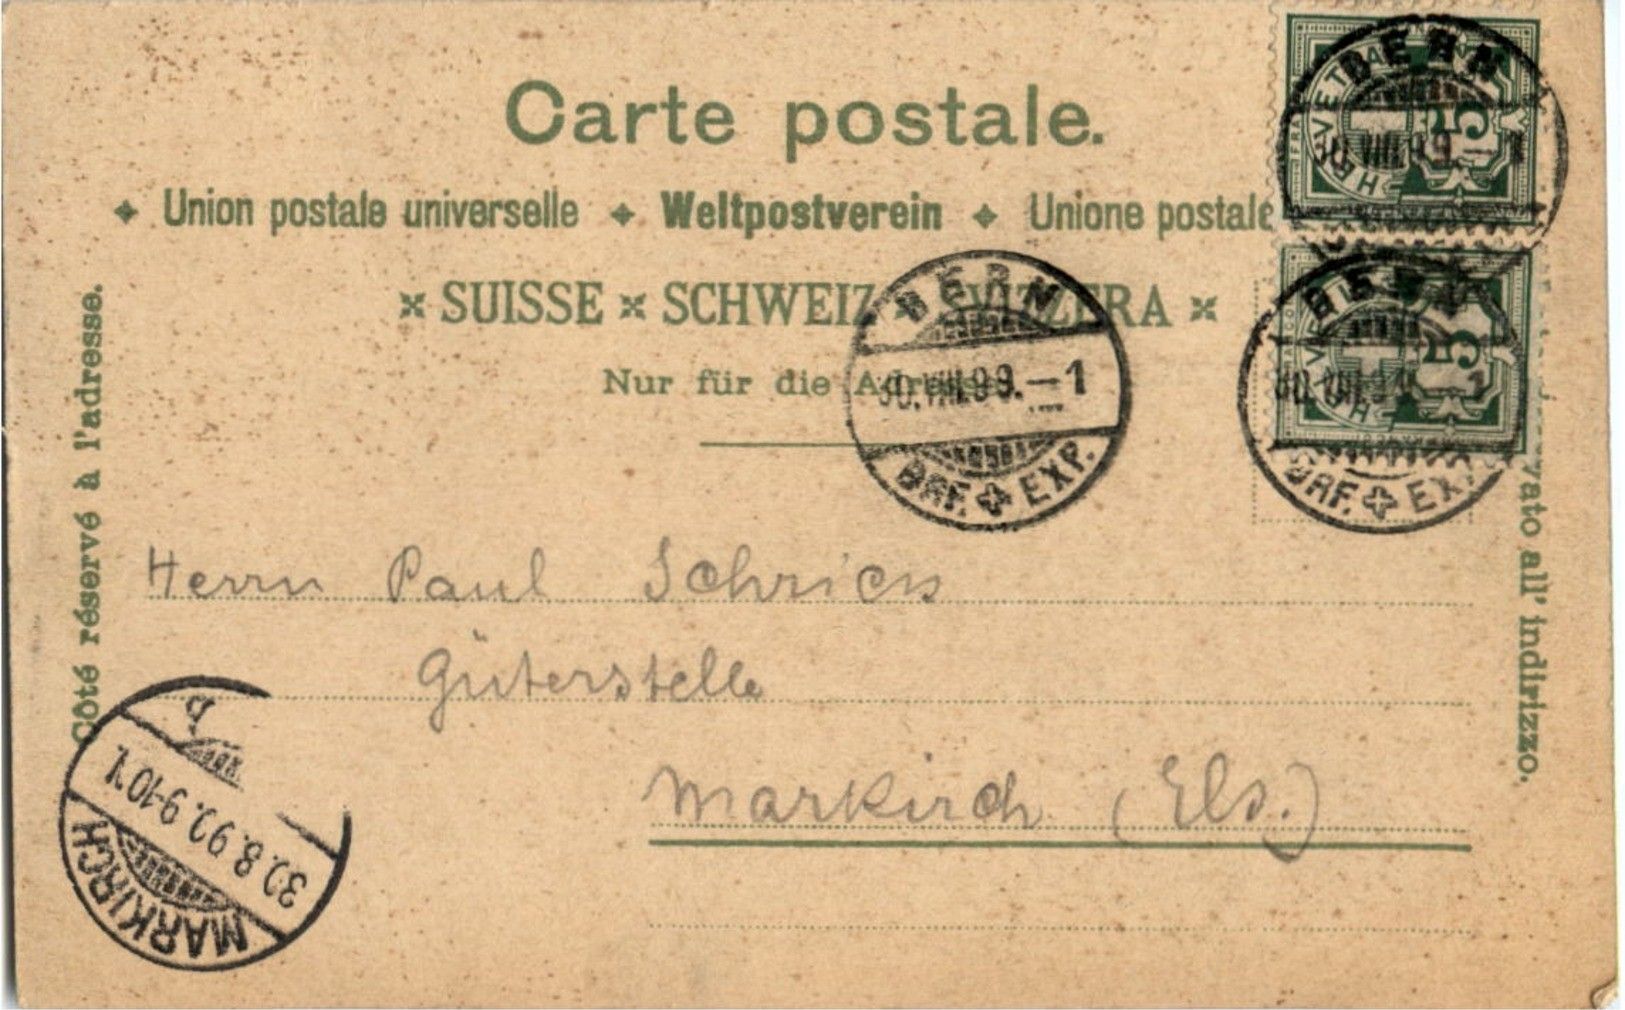 Carte postale.
Union postale universelle Weltpostverein Unione postale
SUISSE SCHWEIZ SVIZZERA
Nur für die Adresse
Côté réservé à l'adresse.
all' indirizzo.
HELVETIA
5
BERN
30.VIII.99.–1
HELVETIA
5
BERN
30.VIII.99.–1
BRF. EXP.
BERN
30.VIII.99.–1
BRF. EXP.
Herrn Paul Schrick
Güterstelle
Markirch (Els.)
MARKIRCH
30.8.99. 9-10V.
b